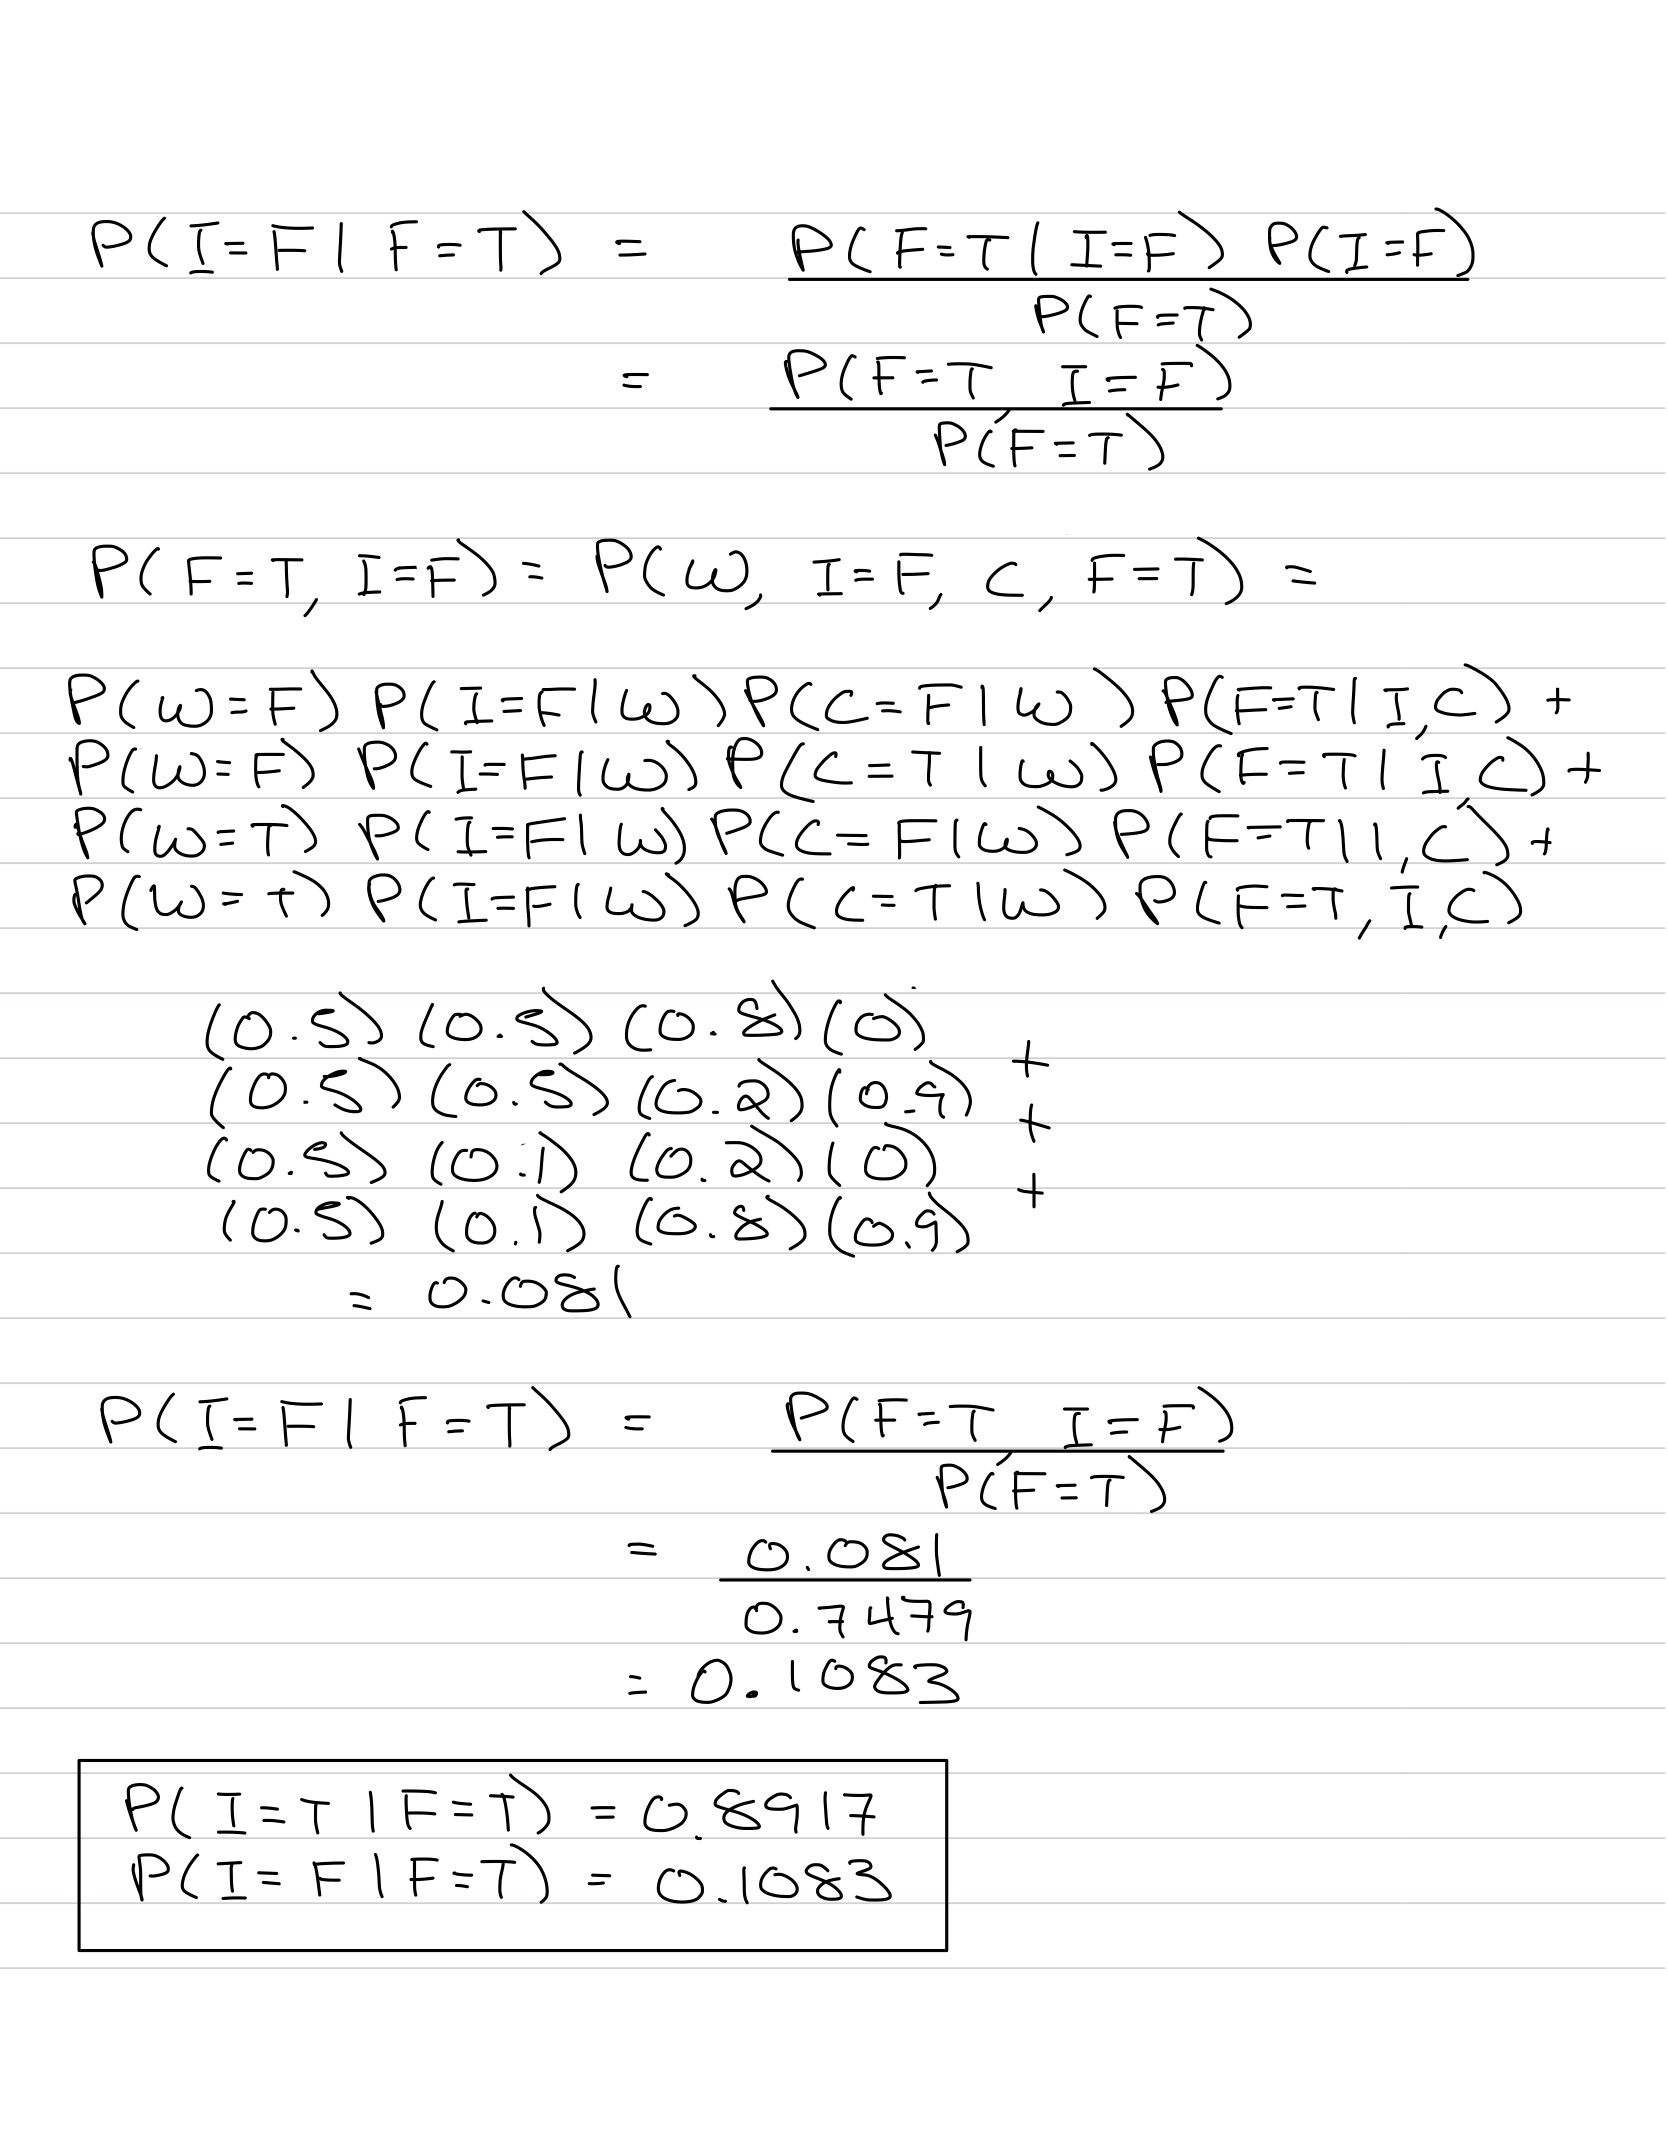 P(I=F | F=T) = P(F=T | I=F) P(I=F)
P(F=T)
= P(F=T, I=F)
P(F=T)
P(F=T, I=F) = P(W, I=F, C, F=T) =
P(W=F) P(I=F|W) P(C=F|W) P(F=T|I,C) +
P(W=F) P(I=F|W) P(C=T|W) P(F=T|I,C) +
P(W=T) P(I=F|W) P(C=F|W) P(F=T|I,C) +
P(W=T) P(I=F|W) P(C=T|W) P(F=T,I,C)
(0.5) (0.5) (0.8) (0) +
(0.5) (0.5) (0.2) (0.9) +
(0.5) (0.1) (0.2) (0) +
(0.5) (0.1) (0.8) (0.9)
= 0.081
P(I=F | F=T) = P(F=T, I=F)
P(F=T)
= 0.081
0.7479
= 0.1083
P(I=T | F=T) = 0.8917
P(I=F | F=T) = 0.1083